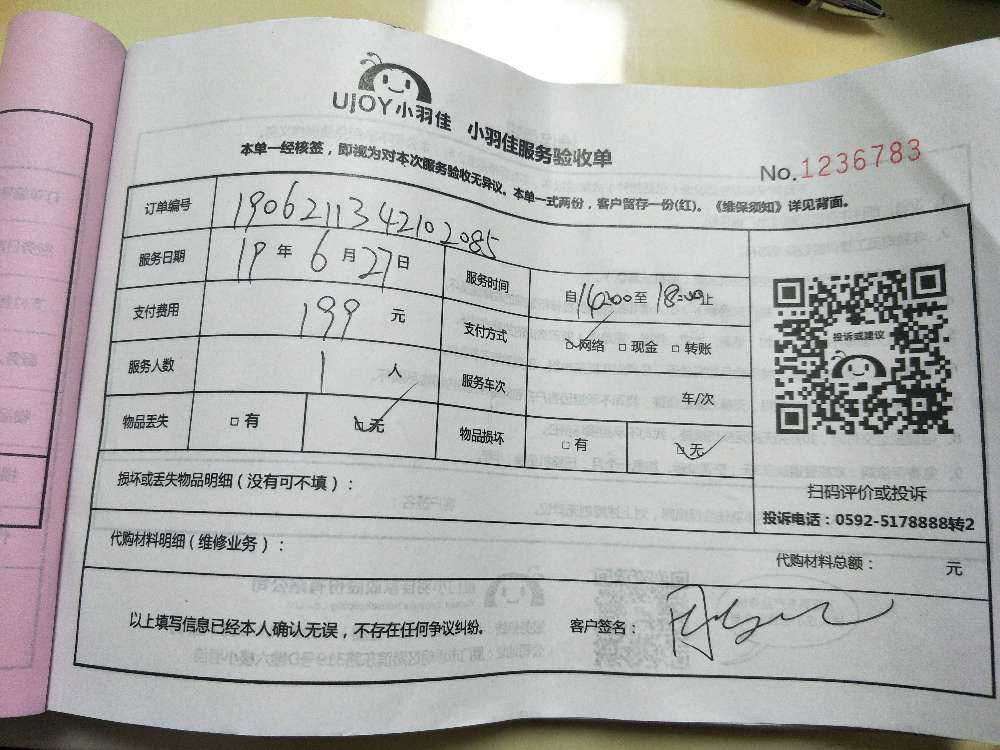 UjOY小羽佳 小羽佳服务验收单
本单一经核签，即视为对本次服务验收无异议。本单一式两份，客户留存一份(红)。《维保须知》详见背面。
No.1236783
订单编号 1906211342102085
服务日期 19年6月27日 服务时间 自14:00至18:00止
支付费用 199 元 支付方式 ☑网络 □现金 □转账
服务人数 1 人 服务车次 车/次
物品丢失 □有 ☑无 物品损坏 □有 ☑无
投诉或建议
扫码评价或投诉
投诉电话：0592-5178888转2
损坏或丢失物品明细（没有可不填）：
代购材料明细（维修业务）： 代购材料总额： 元
以上填写信息已经本人确认无误，不存在任何争议纠纷。 客户签名：